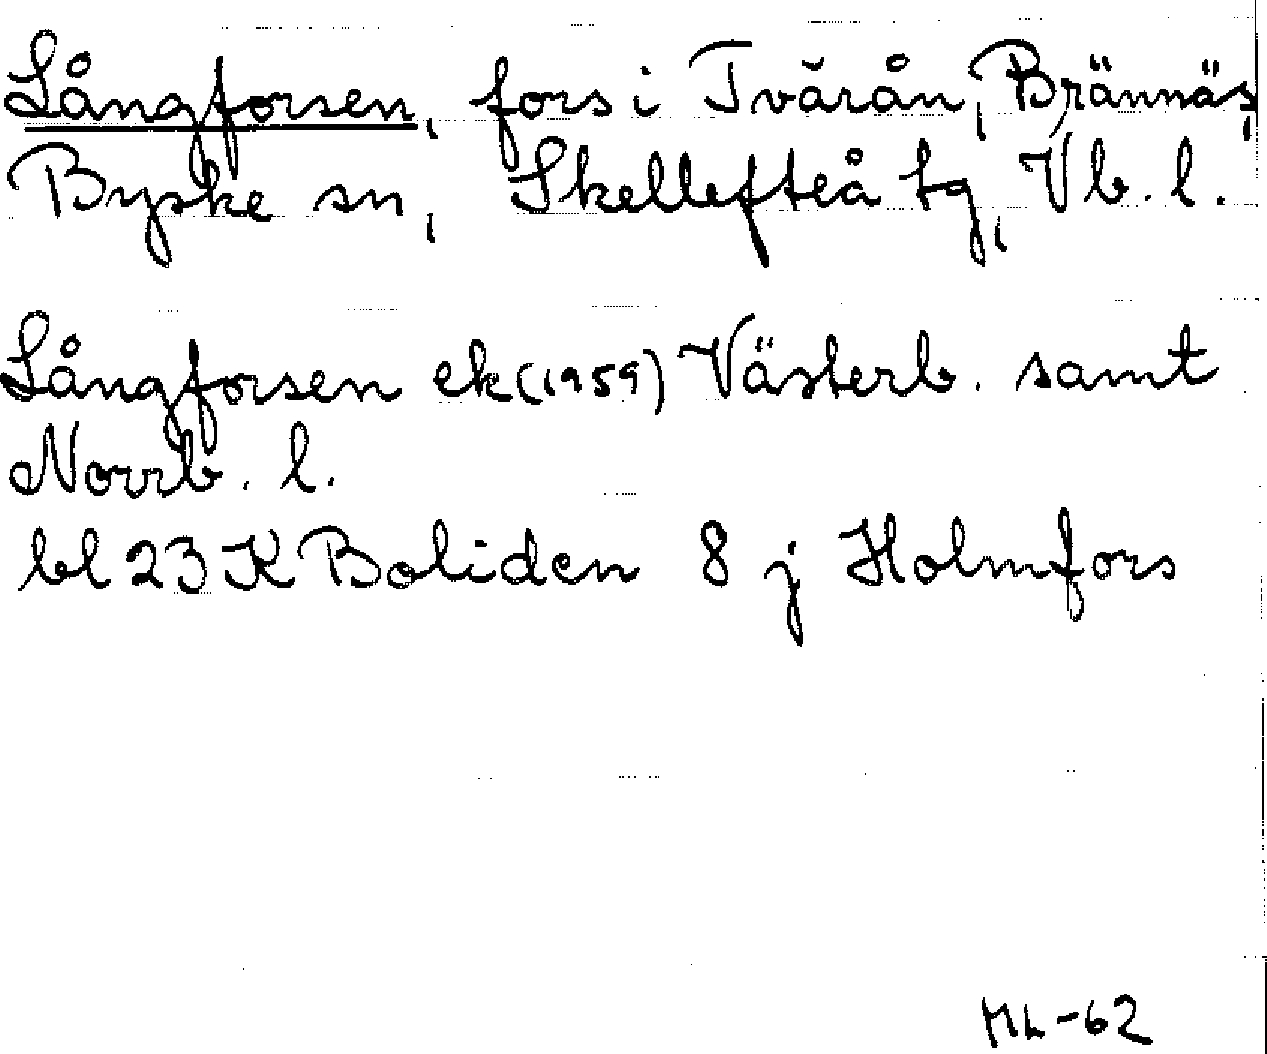 Långforsen, fors i Tvärån, Brännäs,
Byske sn, Skellefteå tg, Vb. l.
Långforsen ek (1959) Västerb. samt
Norrb. l.
bl 23 K Boliden 8 j Holmfors
ML-62